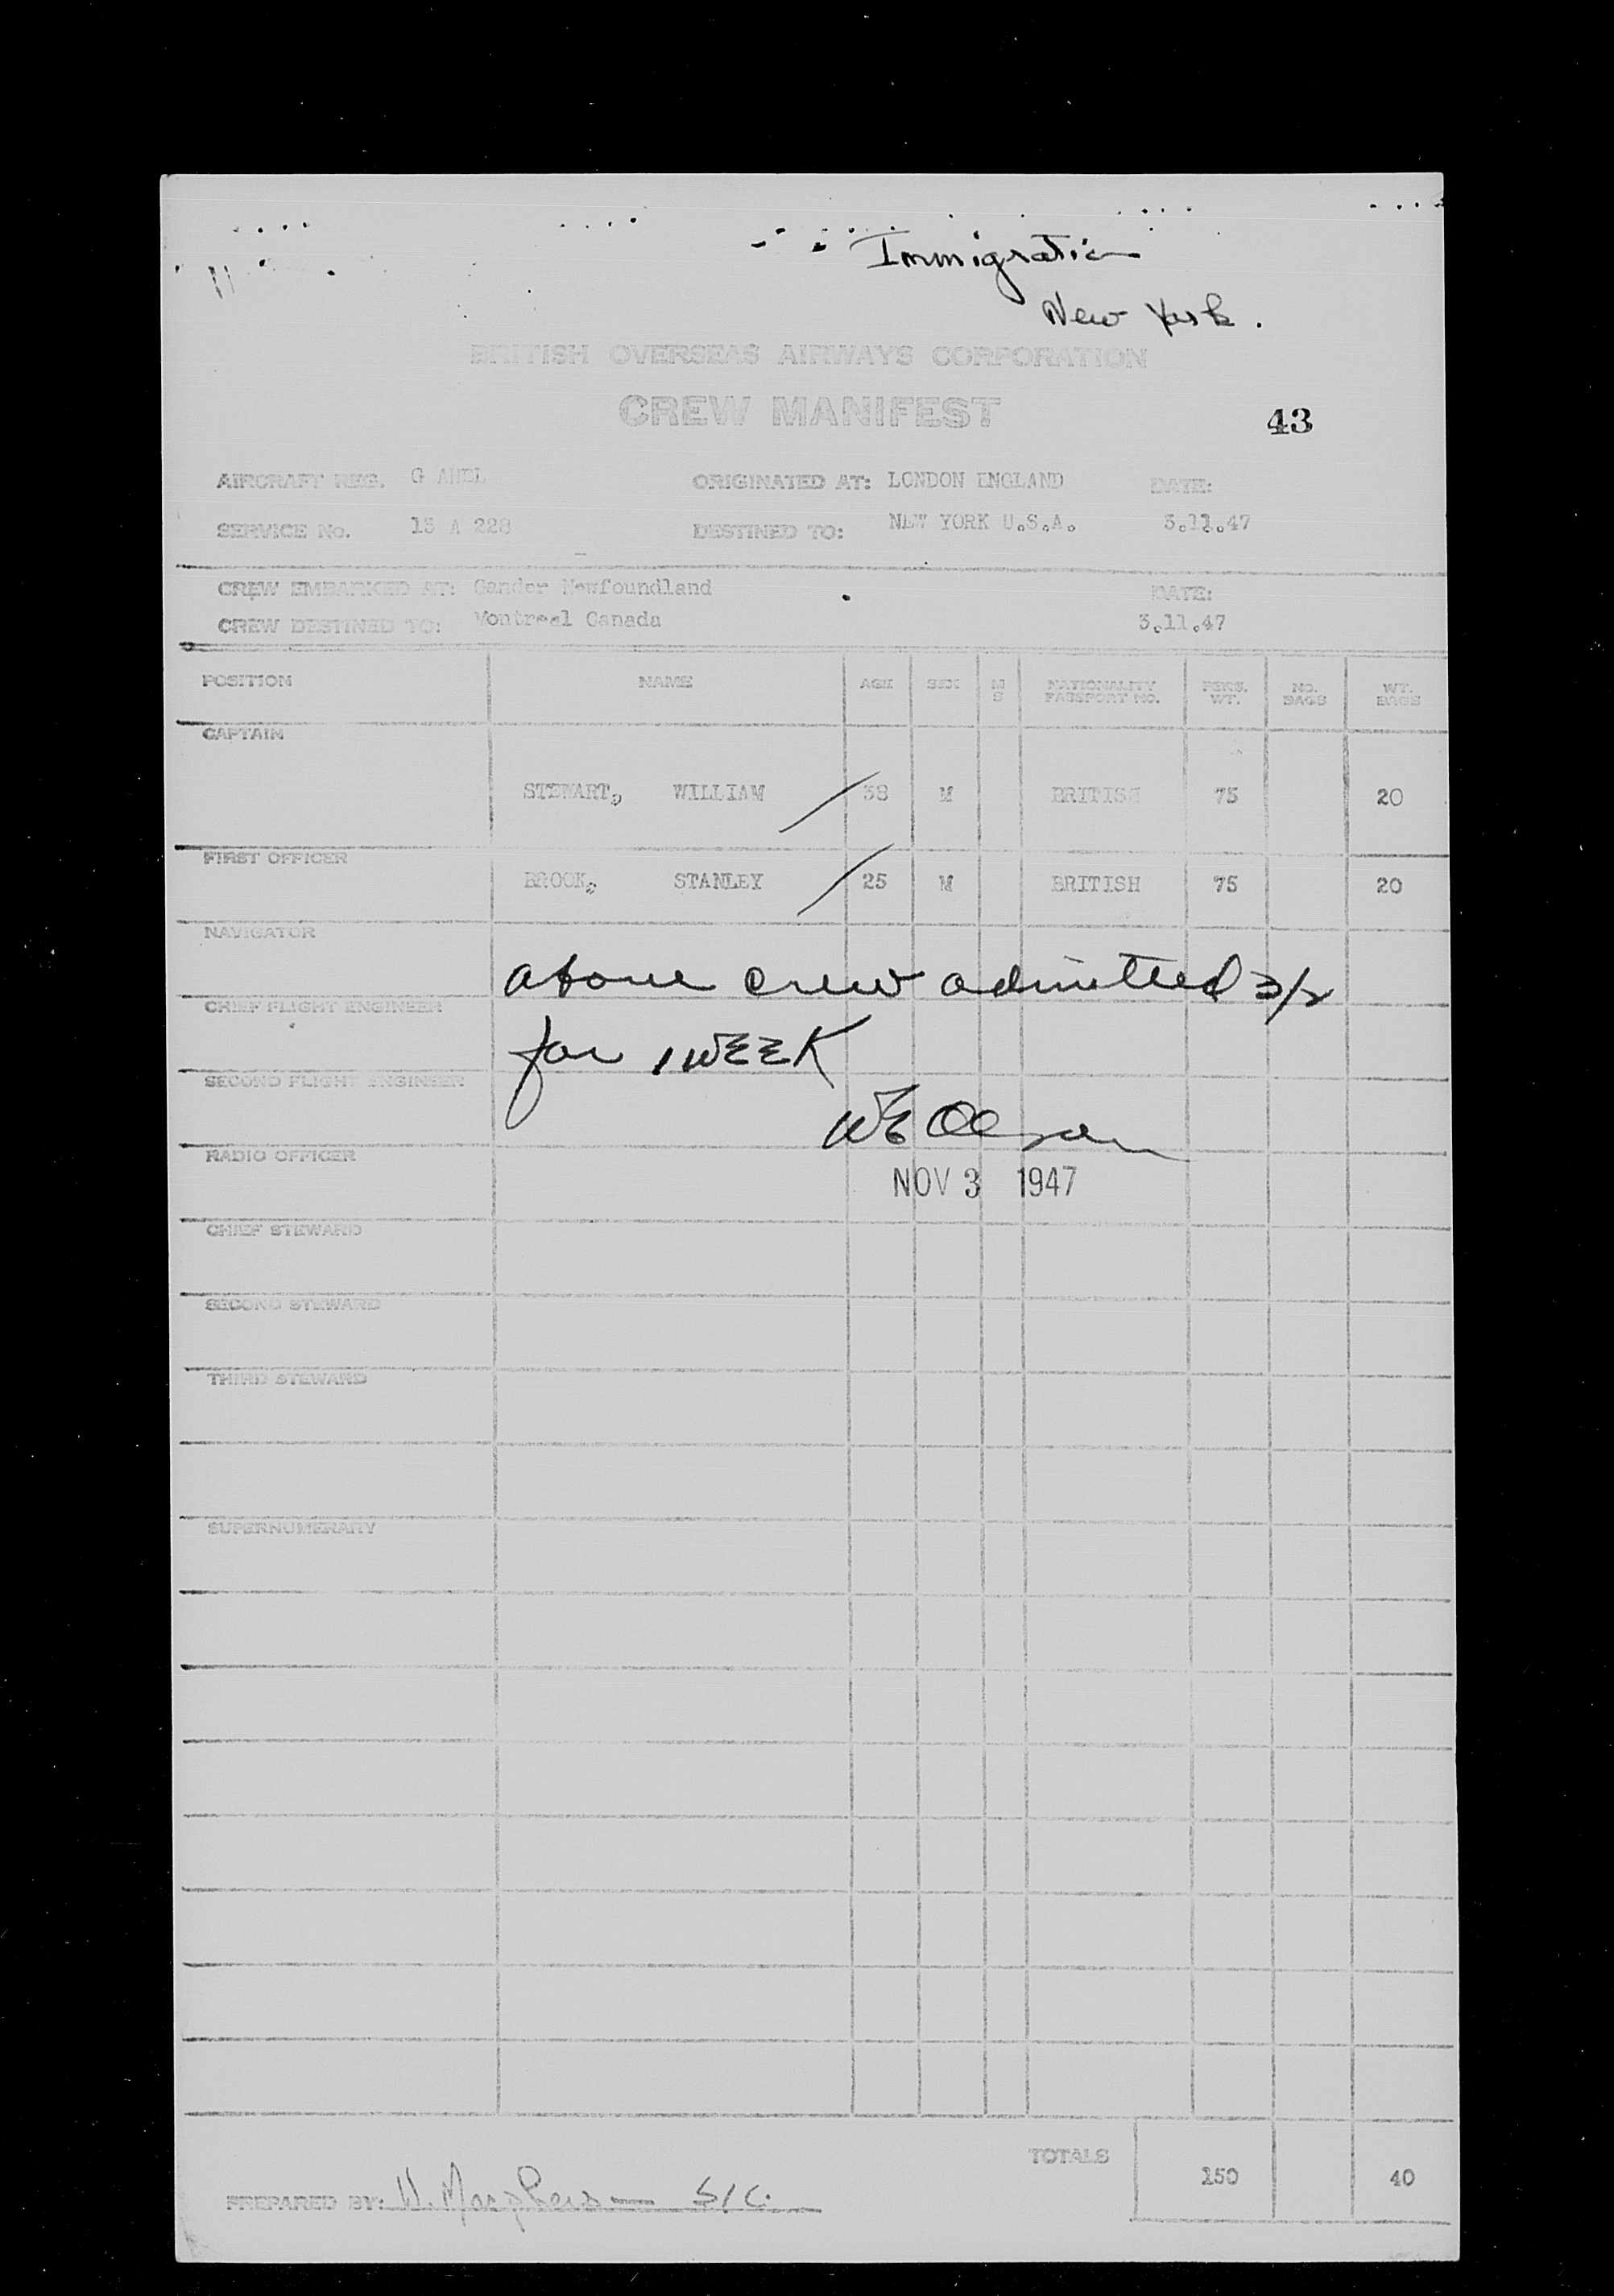 Immigration
New York.
BRITISH OVERSEAS AIRWAYS CORPORATION
CREW MANIFEST
43
AIRCRAFT REG. G ORIGINATED AT: LONDON ENGLAND DATE:
SERVICE No. 15 A 228 DESTINED TO: NEW YORK U.S.A. 3.11.47
CREW EMBARKED AT: Gander Newfoundland DATE:
CREW DESTINED TO: Montreal Canada 3.11.47
POSITION NAME AGE SEX M S NATIONALITY PASSPORT NO. PERS. WT. NO. BAGS WT. BAGS
CAPTAIN
STEWART, WILLIAM 38 M BRITISH 75 20
FIRST OFFICER
BROOK, STANLEY 25 M BRITISH 75 20
NAVIGATOR
above crew admitted
CHIEF FLIGHT ENGINEER
for 1 WEEK
SECOND FLIGHT ENGINEER
WE Olson
RADIO OFFICER
NOV 3 1947
CHIEF STEWARD
SECOND STEWARD
THIRD STEWARD
SUPERNUMERARY
TOTALS
150 40
PREPARED BY: